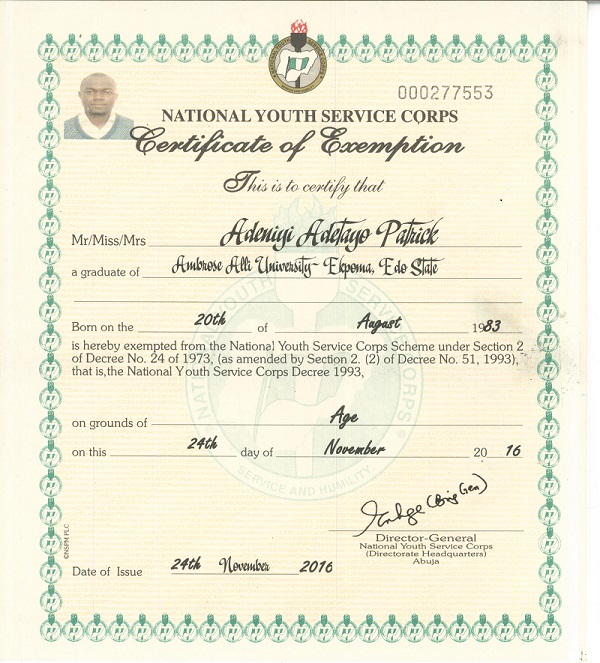 000277553
NATIONAL YOUTH SERVICE CORPS
Certificate of Exemption
This is to certify that
Mr/Miss/Mrs Adeniyi Adetayo Patrick
a graduate of Ambrose Alli University- Ekpoma, Edo State
Born on the 20th of August 1983
is hereby exempted from the National Youth Service Corps Scheme under Section 2
of Decree No. 24 of 1973, (as amended by Section 2. (2) of Decree No. 51, 1993),
that is,the National Youth Service Corps Decree 1993,
on grounds of Age
on this 24th day of November 20 16
NATIONAL YOUTH SERVICE CORPS
SERVICE AND HUMILITY
(Brig Gen)
Director-General
National Youth Service Corps
(Directorate Headquarters)
Abuja
©NSPM PLC
Date of Issue 24th November 2016